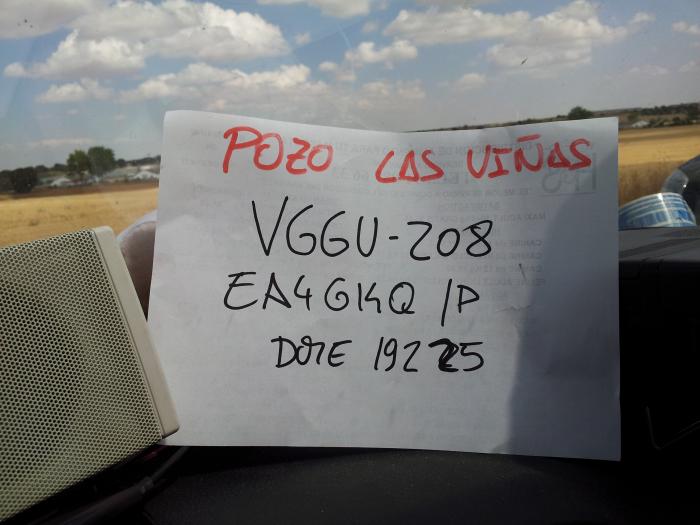 POZO LAS VIÑAS
VGGU-208
EA4GKQ /P
DME 19225